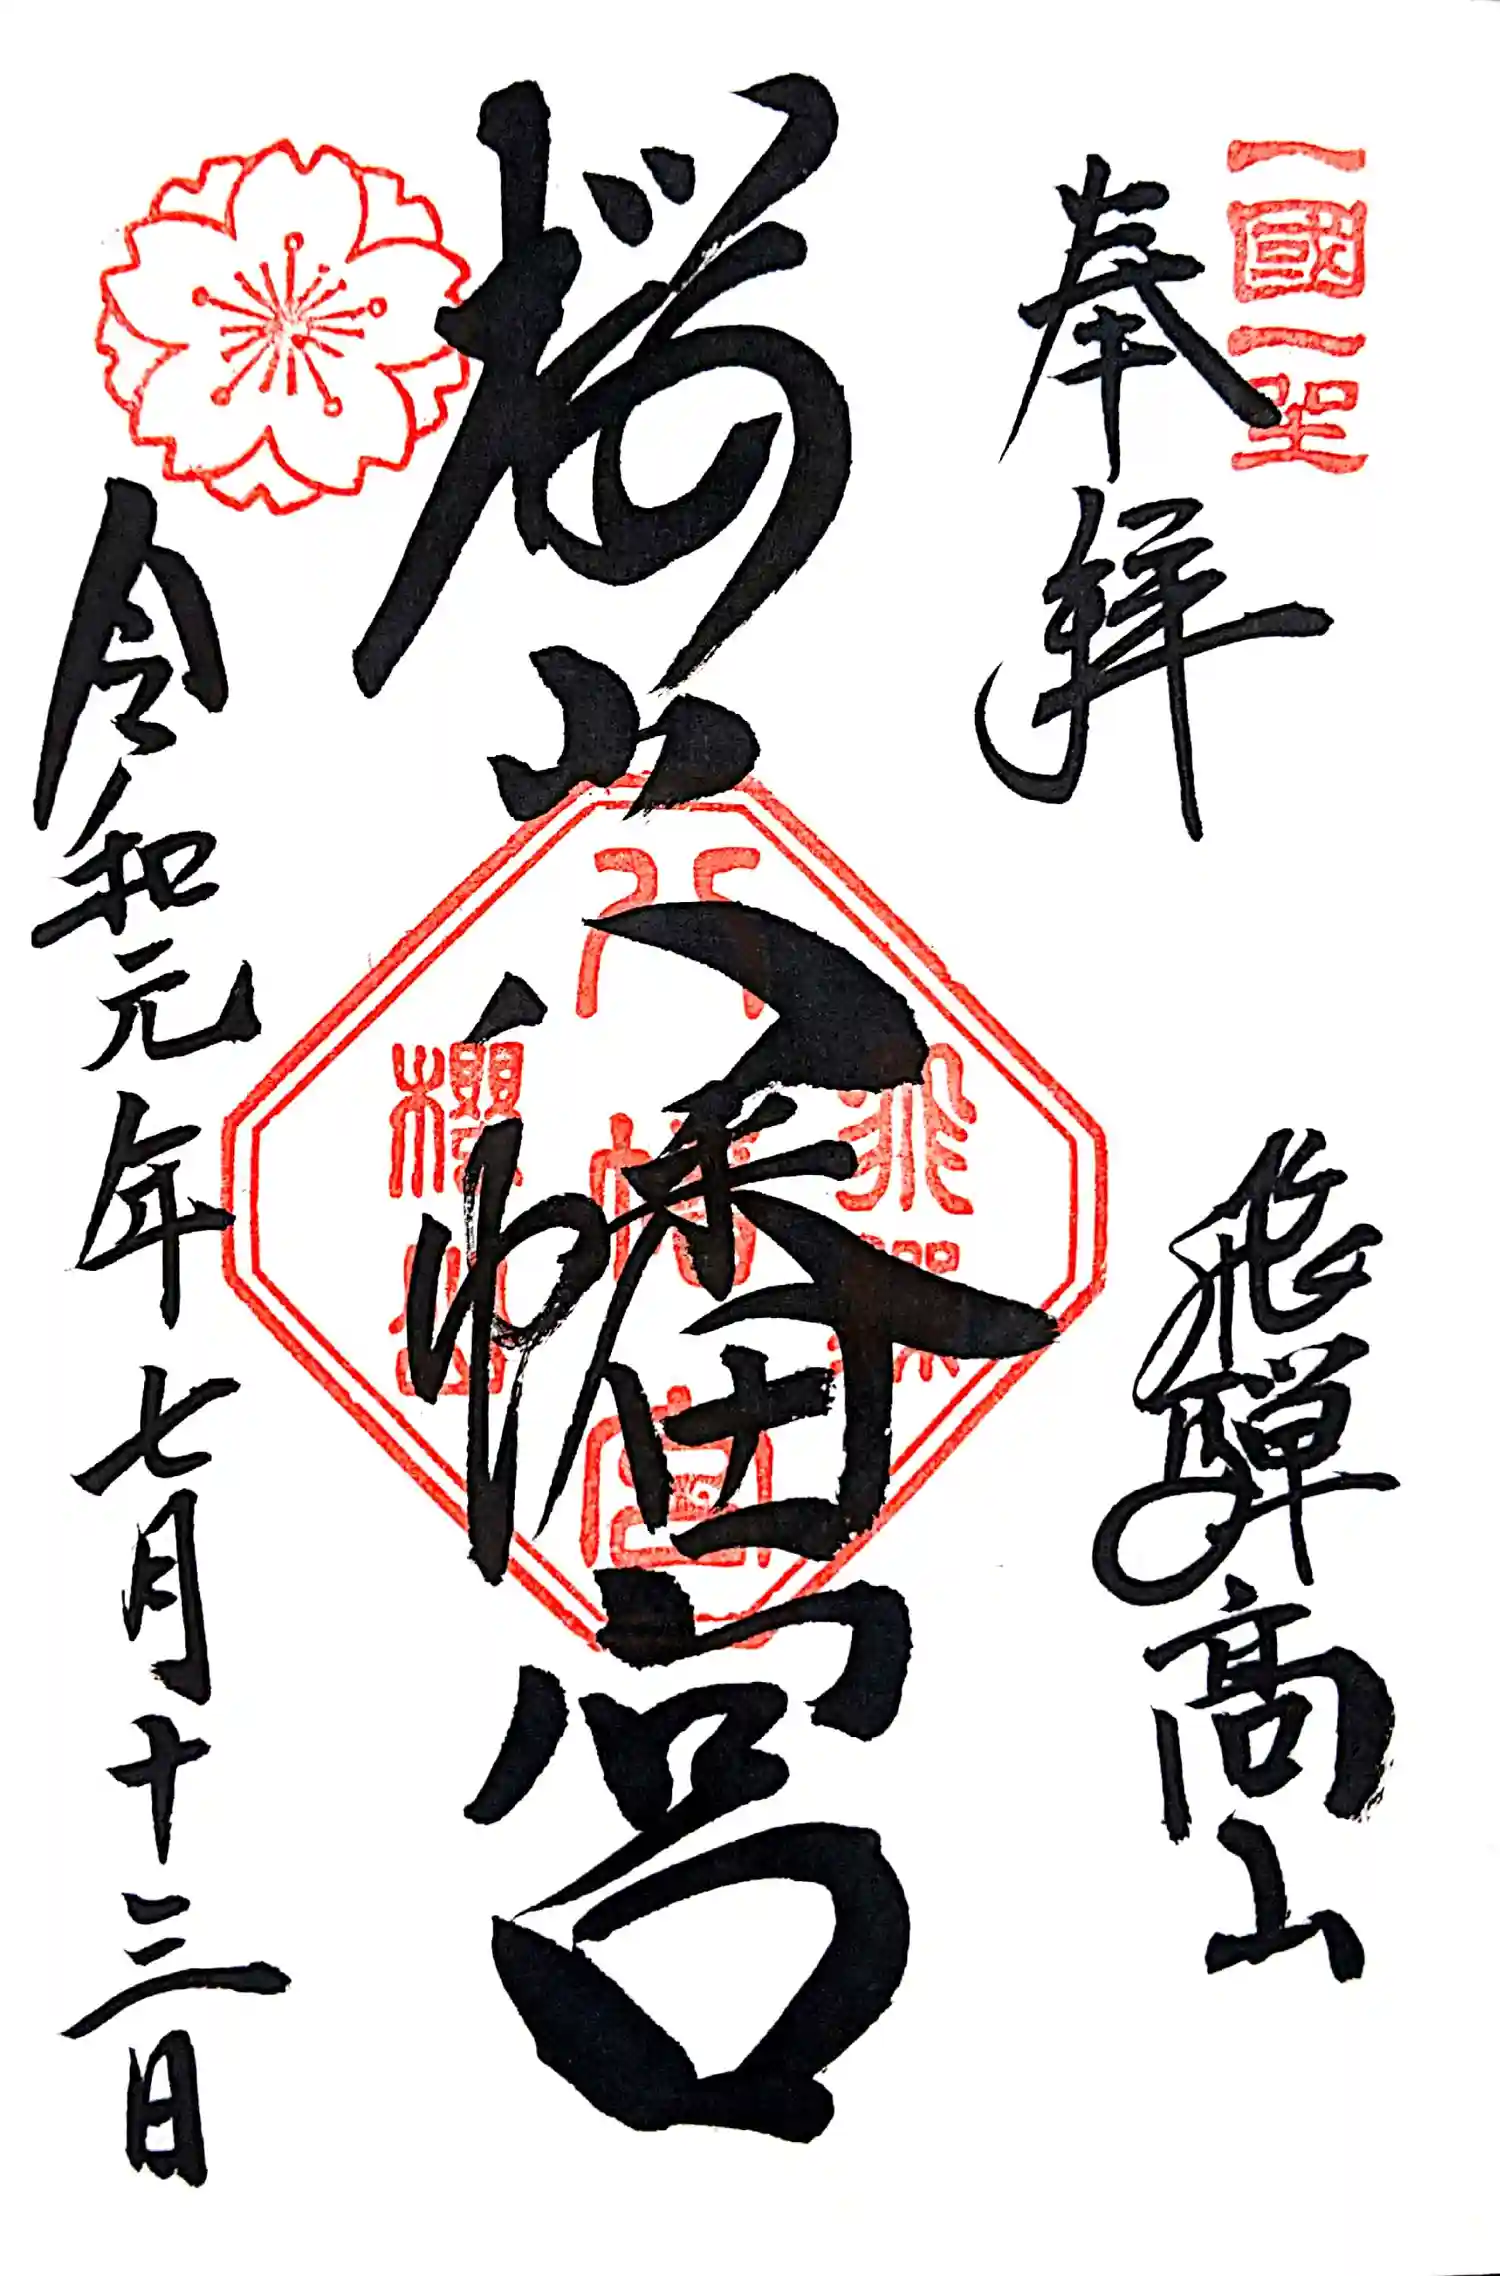 一國一
奉拝
飛騨高山
桜山八幡宮
飛驒
八幡宮
櫻山
令和元年七月十三日